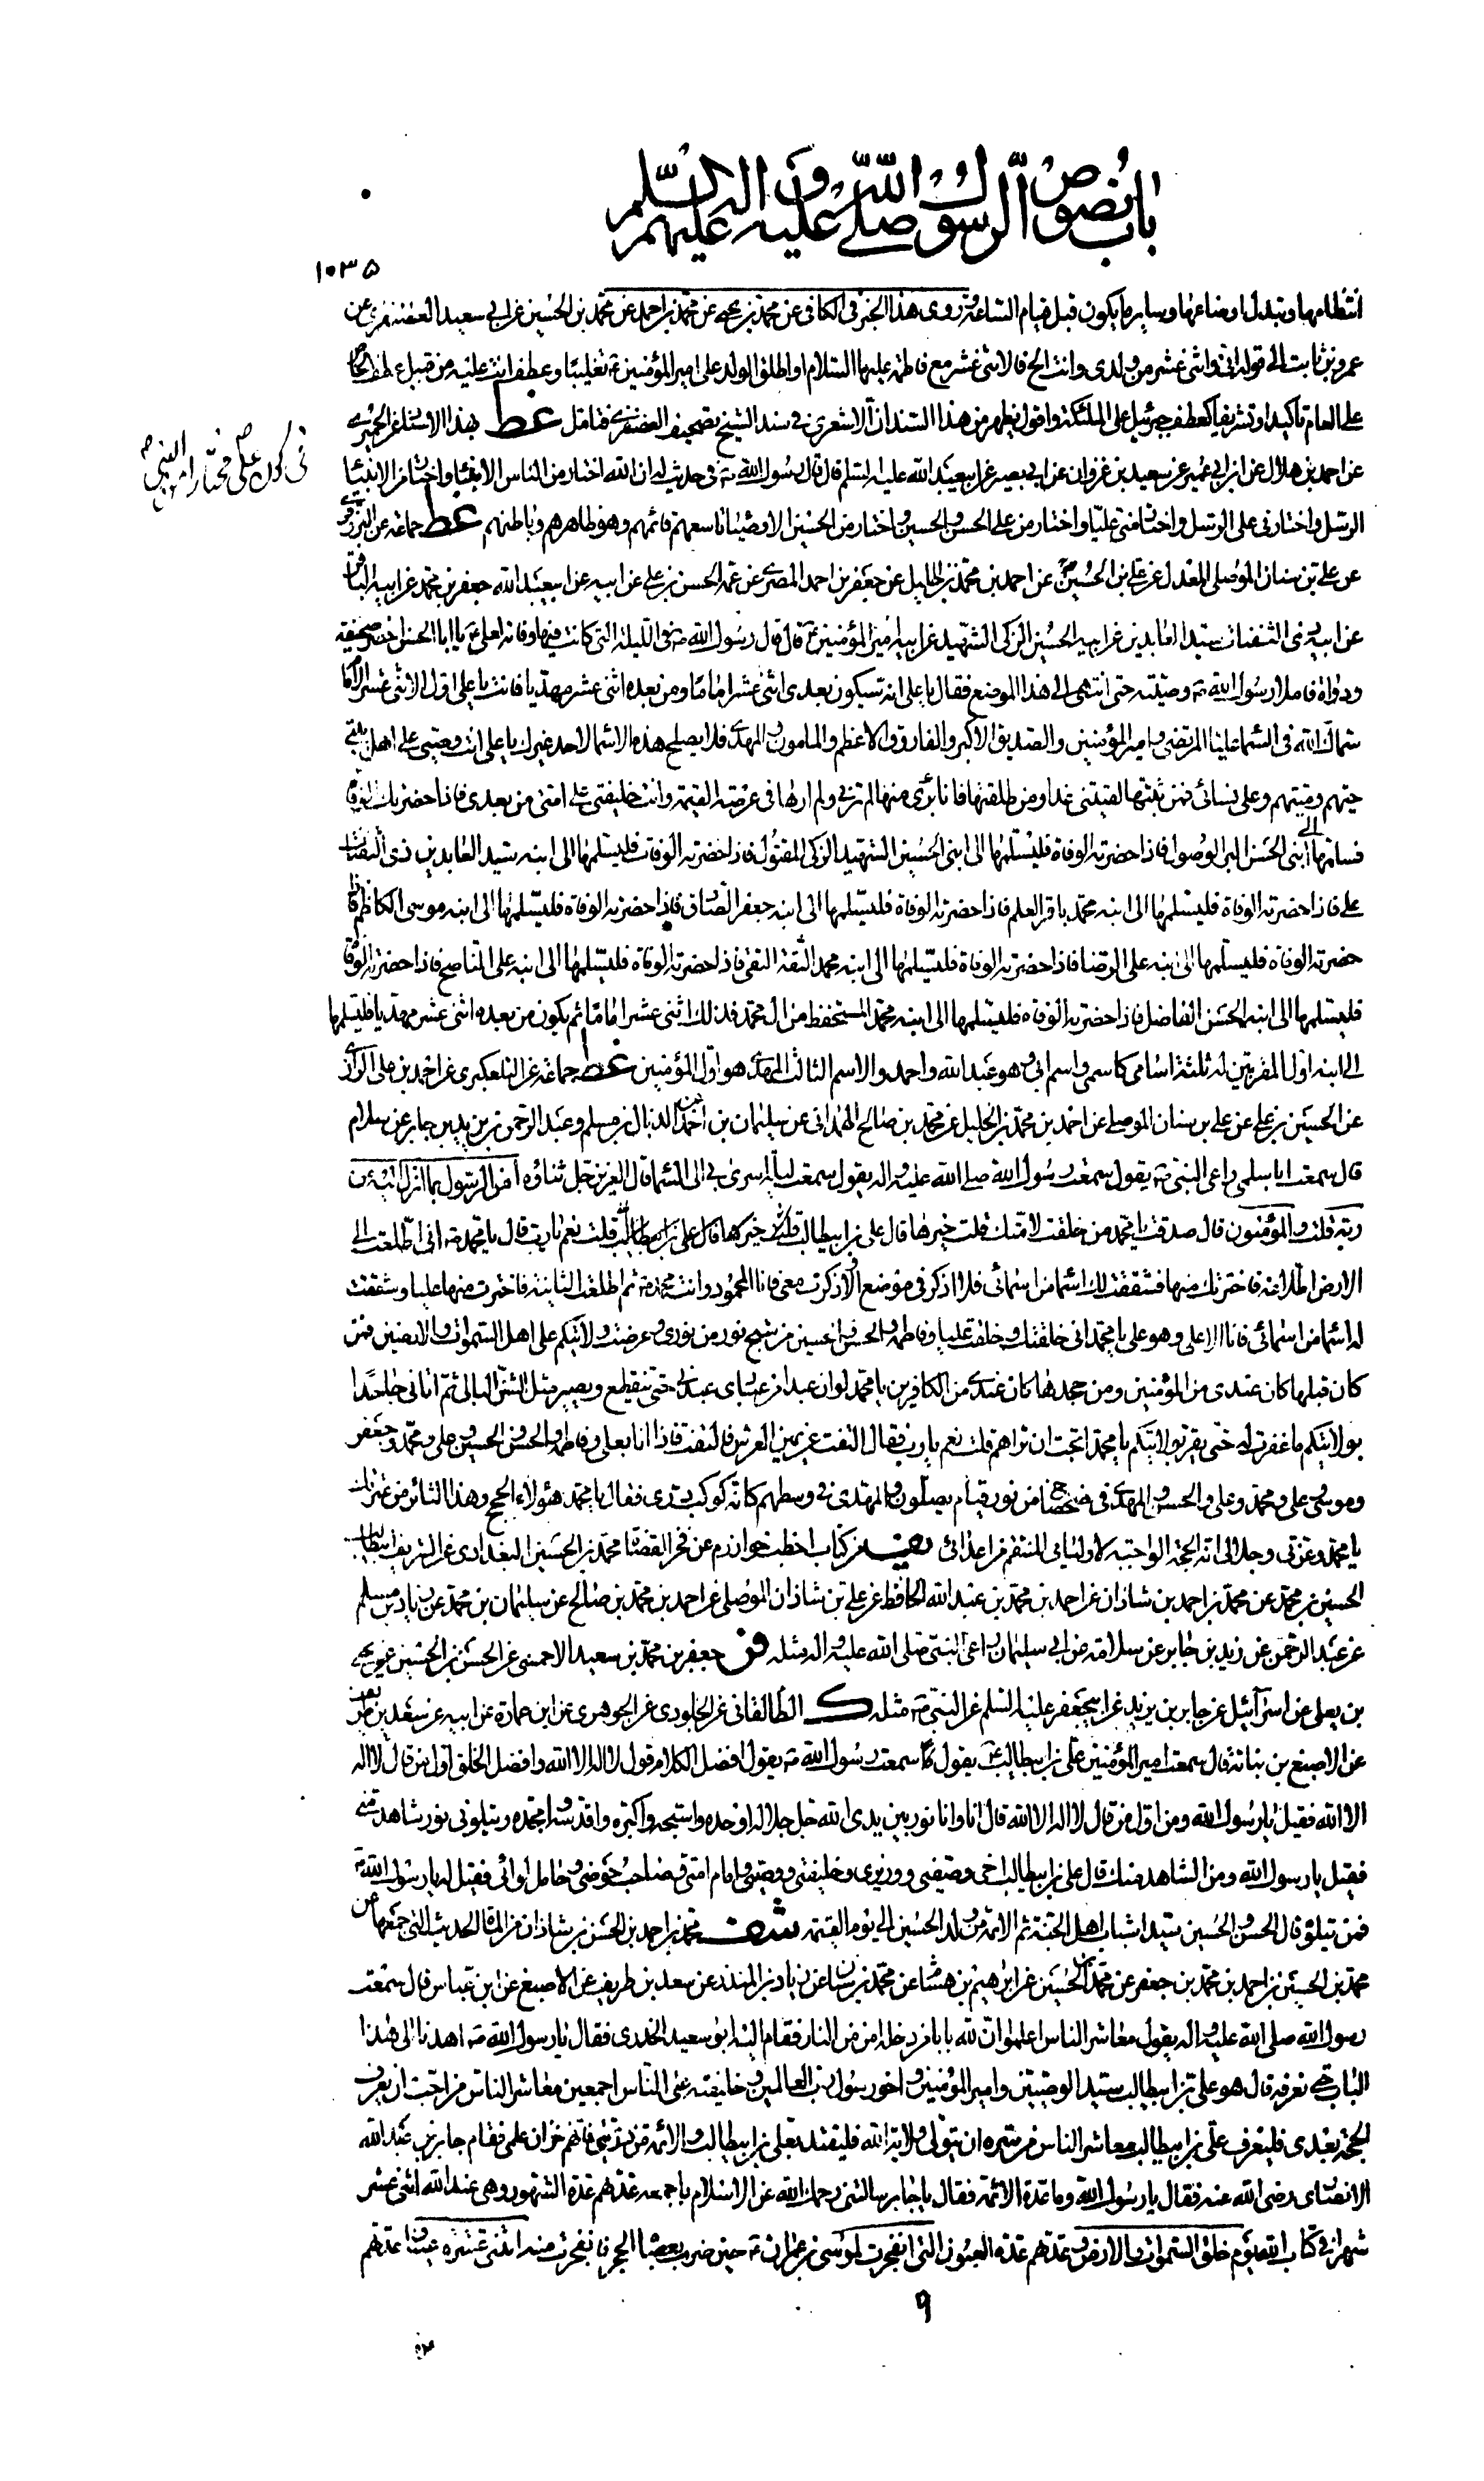 باب نصوص الرسول صلى الله عليه وآله عليهم السلم
١٠٣٥
انتظامها وتبدل اوضاعها وساير ما يكون قبل قيام الساعة روى هذا الخبر فى الكافى عن محمد بن يحيى عن محمد بن احمد عن محمد بن الحسين عن ابى سعيد العصفرى عن
عمرو بن ثابت الى قوله انى واثنى عشر من ولدى وانت الخ فالاثنى عشر مع فاطمة عليها السلام او اطلق الولد على امير المؤمنين ع تغليبا وعطف انت عليه من قبيل عطف الخاص
على العام تاكيدا وتشريفا كعطف جبرئيل على الملئكة واقول يظهر من هذا السند ان الاشعرى فى سند الشيخ تصحيف العصفرى فتامل غط بهذا الاسناد عن الحميرى
فى كون على ع مختار النبى ص
عن احمد بن هلال عن ابن ابى عمير عن سعيد بن غزوان عن ابى بصير عن ابيعبد الله عليه السلم قال قال رسول الله ص فى حديث له ان الله اختار من الناس الانبياء واختار من الانبياء
الرسل واختارنى على الرسل واختار منى عليا واختار من على الحسن والحسين واختار من الحسين الاوصياء تاسعهم قائمهم وهو ظاهرهم وباطنهم غط جماعة عن البزوفرى
عن على بن سنان الموصلى المعدل عن على بن الحسين عن احمد بن محمد بن الخليل عن جعفر بن احمد المصرى عن عمه الحسن بن على عن ابيه عن ابيعبد الله جعفر بن محمد عن ابيه الباقر
عن ابيه ذى الثفنات سيد العابدين عن ابيه الحسين الزكى الشهيد عن ابيه امير المؤمنين ع قال قال رسول الله ص فى الليلة التى كانت فيها وفاته لعلى ع يا ابا الحسن احضر صحيفة
ودواة فاملا رسول الله ص وصيته حتى انتهى الى هذا الموضع فقال يا على انه سيكون بعدى اثنى عشر اماما ومن بعده اثنى عشر مهديا فانت يا على اول الاثنى عشر الامام
سماك الله فى السماء عليا المرتضى وامير المؤمنين والصديق الاكبر والفاروق الاعظم والمامون والمهدى فلا يصلح هذه الاسماء لاحد غيرك يا على انت وصيى على اهل بيتى
حيهم وميتهم وعلى نسائى فمن ثبتها لقيتنى غدا ومن طلقتها فانا برىء منها لم ترنى ولم ارها فى عرصة القيمة وانت خليفتى على امتى من بعدى فاذا حضرتك الوفاة
فسلمها الى ابنى الحسن البر الوصول فاذا حضرته الوفاة فليسلمها الى ابنى الحسين الشهيد الزكى المقتول فاذا حضرته الوفاة فليسلمها الى ابنه سيد العابدين ذى الثفنات
على فاذا حضرته الوفاة فليسلمها الى ابنه محمد باقر العلم فاذا حضرته الوفاة فليسلمها الى ابنه جعفر الصادق فاذا حضرته الوفاة فليسلمها الى ابنه موسى الكاظم فاذا
حضرته الوفاة فليسلمها الى ابنه على الرضا فاذا حضرته الوفاة فليسلمها الى ابنه محمد الثقة التقى فاذا حضرته الوفاة فليسلمها الى ابنه على الناصح فاذا حضرته الوفاة
فليسلمها الى ابنه الحسن الفاضل فاذا حضرته الوفاة فليسلمها الى ابنه محمد المستحفظ من ال محمد فذلك اثنى عشر اماما ثم يكون من بعده اثنى عشر مهديا فليسلمها
الى ابنه اول المقربين له ثلثة اسامى كاسمى واسم ابى وهو عبد الله واحمد والاسم الثالث المهدى هو اول المؤمنين غط جماعة عن التلعكبرى عن احمد بن على الرازى
عن الحسين بن على عن على بن سنان الموصلى عن احمد بن محمد بن الخليل عن محمد بن صالح الهمدانى عن سليمان بن احمد عن الذبال بن مسلم وعبد الرحمن بن يزيد بن جابر عن سلام
قال سمعت ابا سلمى راعى النبى ص يقول سمعت رسول الله صلى الله عليه واله يقول سمعت ليلة اسرى بى الى السماء قال العزيز جل ثناؤه امن الرسول بما انزل اليه من
ربه قلت والمؤمنون قال صدقت يا محمد من خلفت لامتك قلت خيرها قال على بن ابيطالب قلت نعم يا رب قال يا محمد ص انى اطلعت الى
الارض اطلاعة فاخترتك منها فشققت لك اسما من اسمائى فلا اذكر فى موضع الا وذكرت معى فانا المحمود وانت محمد ثم اطلعت الثانية فاخترت منها عليا وشققت
له اسما من اسمائى فانا الاعلى وهو على يا محمد انى خلقتك وخلقت عليا وفاطمة والحسن والحسين من شبح نور من نورى وعرضت ولايتكم على اهل السموات والارضين فمن
كان قبلها كان عندى من المؤمنين ومن جحدها كان عندى من الكافرين يا محمد لو ان عبدا من عبادى عبدنى حتى ينقطع ويصير مثل الشن البالى ثم اتانى جاحدا
بولايتكم ما غفرت له حتى يقر بولايتكم يا محمد اتحب ان تراهم قلت نعم يا رب فقال التفت عن يمين العرش فالتفت فاذا انا بعلى وفاطمة والحسن والحسين وعلى ومحمد وجعفر
وموسى وعلى ومحمد وعلى والحسن والمهدى فى ضحضاح من نور قيام يصلون والمهدى فى وسطهم كانه كوكب درى فقال يا محمد هؤلاء الحجج وهذا الثائر من عترتك
يا محمد وعزتى وجلالى انه الحجة الواجبة لاوليائى المنتقم من اعدائى يف من كتاب اخطب خوارزم عن فخر القضاة محمد بن الحسين البغدادى عن الشريف ابيطالب
الحسين بن محمد عن محمد بن احمد بن شاذان عن احمد بن محمد بن عبد الله الحافظ عن على بن شاذان الموصلى عن احمد بن محمد بن صالح عن سليمان بن محمد عن زياد بن مسلم
عن عبد الرحمن عن زيد بن جابر عن سلامة عن ابى سليمان راعى النبى صلى الله عليه واله مثله فر جعفر بن محمد بن سعيد الاحمسى عن الحسن بن الحسين عن يحيى
بن يعلى عن اسرآئيل عن جابر بن يزيد عن ابيجعفر عليه السلم عن النبى ص مثله ك الطالقانى عن الجلودى عن الجوهرى عن ابن عمارة عن ابيه عن سعد بن طريف
عن الاصبغ بن نباتة قال سمعت امير المؤمنين على بن ابيطالب ع يقول سمعت رسول الله ص يقول افضل الكلام قول لا اله الا الله وافضل الخلق اول من قال لا اله
الا الله فقيل يا رسول الله ومن اول من قال لا اله الا الله قال انا وانا نور بين يدى الله جل جلاله اوحده واسبحه واكبره واقدسه وامجده ويتلونى نور شاهد منى
فقيل يا رسول الله ومن الشاهد منك قال على بن ابيطالب اخى وصفيى ووزيرى وخليفتى ووصيى وامام امتى وصاحب حوضى وحامل لوائى فقيل له يا رسول الله
فمن يتلوه قال الحسن والحسين سيدا شباب اهل الجنة ثم الائمة من ولد الحسين الى يوم القيمة شف محمد بن احمد بن الحسن بن شاذان من المائة الحديث التى جمعها عن
محمد بن الحسين بن احمد بن محمد بن جعفر عن محمد بن الحسين عن ابرهيم بن هشام عن محمد بن سنان عن زياد بن المنذر عن سعد بن طريف عن الاصبغ عن ابن عباس قال سمعت
رسول الله صلى الله عليه واله يقول معاشر الناس اعلموا ان لله بابا من دخله امن من النار فقام اليه ابو سعيد الخدرى فقال يا رسول الله ص اهدنا الى هذا
الباب حتى نعرفه قال هو على بن ابيطالب سيد الوصيين وامير المؤمنين واخو رسول رب العالمين وخليفته على الناس اجمعين معاشر الناس من احب ان يعرف
الحجة بعدى فليعرف على بن ابيطالب معاشر الناس من سره ان يتولى ولاية الله فليقتد بعلى بن ابيطالب والائمة من ذريتى فانهم خزان علمى فقام جابر بن عبد الله
الانصارى رضى الله عنه فقال يا رسول الله وما عدة الائمة فقال يا جابر سالتنى رحمك الله عن الاسلام باجمعه عدتهم عدة الشهور وهى عند الله اثنى عشر
شهرا فى كتاب الله يوم خلق السموات والارض وعدتهم عدة العيون التى انفجرت لموسى بن عمران ع حين ضرب بعصاه الحجر فانفجرت منه اثنتى عشرة عينا وعدتهم
٩